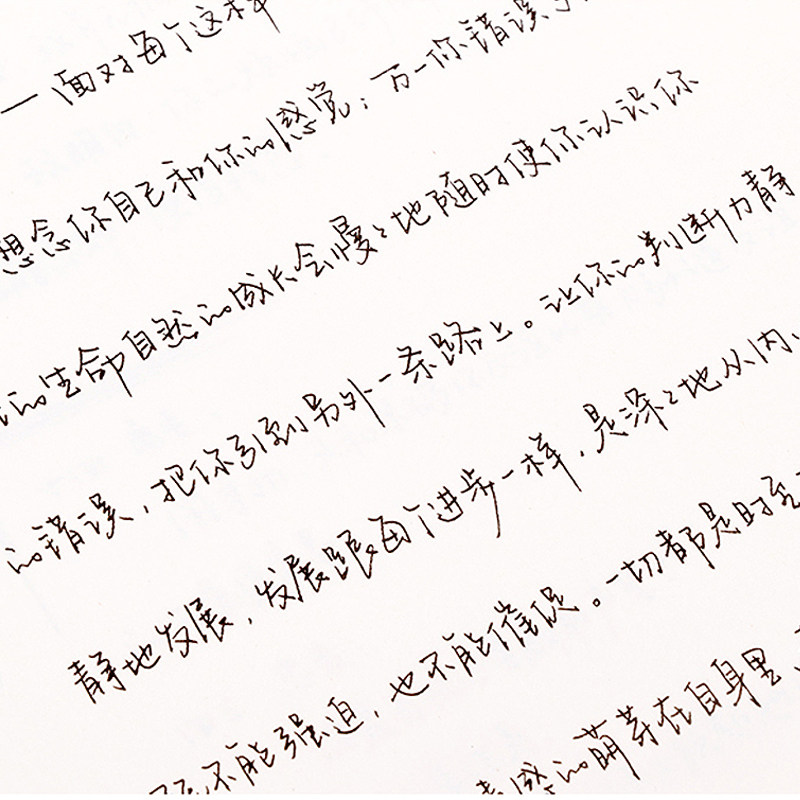 一面对每个这样
想念你自己和你的感觉；万一你错误
的生命自然的成长会慢々地随时使你认识你
的错误，把你引到另外一条路上。让你的判断力静
静地发展，发展跟每个进步一样，是深々地从内
不能强迫，也不能催促。一切都是时至
感的萌芽在自身里